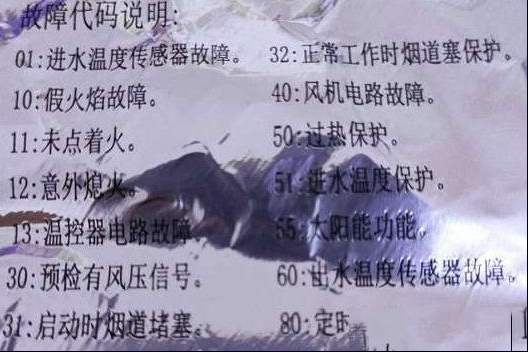 故障代码说明:
01:进水温度传感器故障。
10:假火焰故障。
11:未点着火。
12:意外熄火。
13:温控器电路故障
30:预检有风压信号。
31:启动时烟道堵塞。
32:正常工作时烟道塞保护。
40:风机电路故障。
50:过热保护。
51:进水温度保护。
55:太阳能功能。
60:出水温度传感器故障。
80:定时